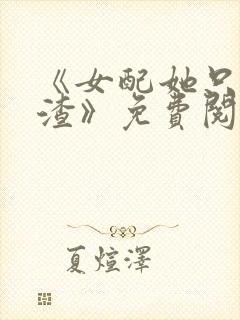 《女配她只
渣》免費閱
夏煊澤